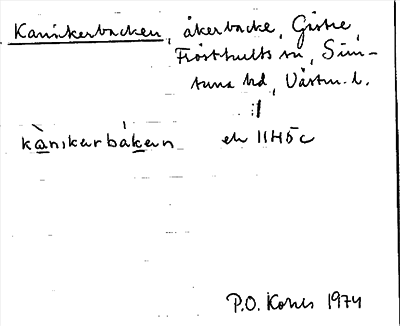 Kanikerbacken, åkerbacke, Gästre,
Frösthults sn, Sim-
tuna hd, Västm. l.
kànikarbákan ek 11H5c
P.O. Kones 1974